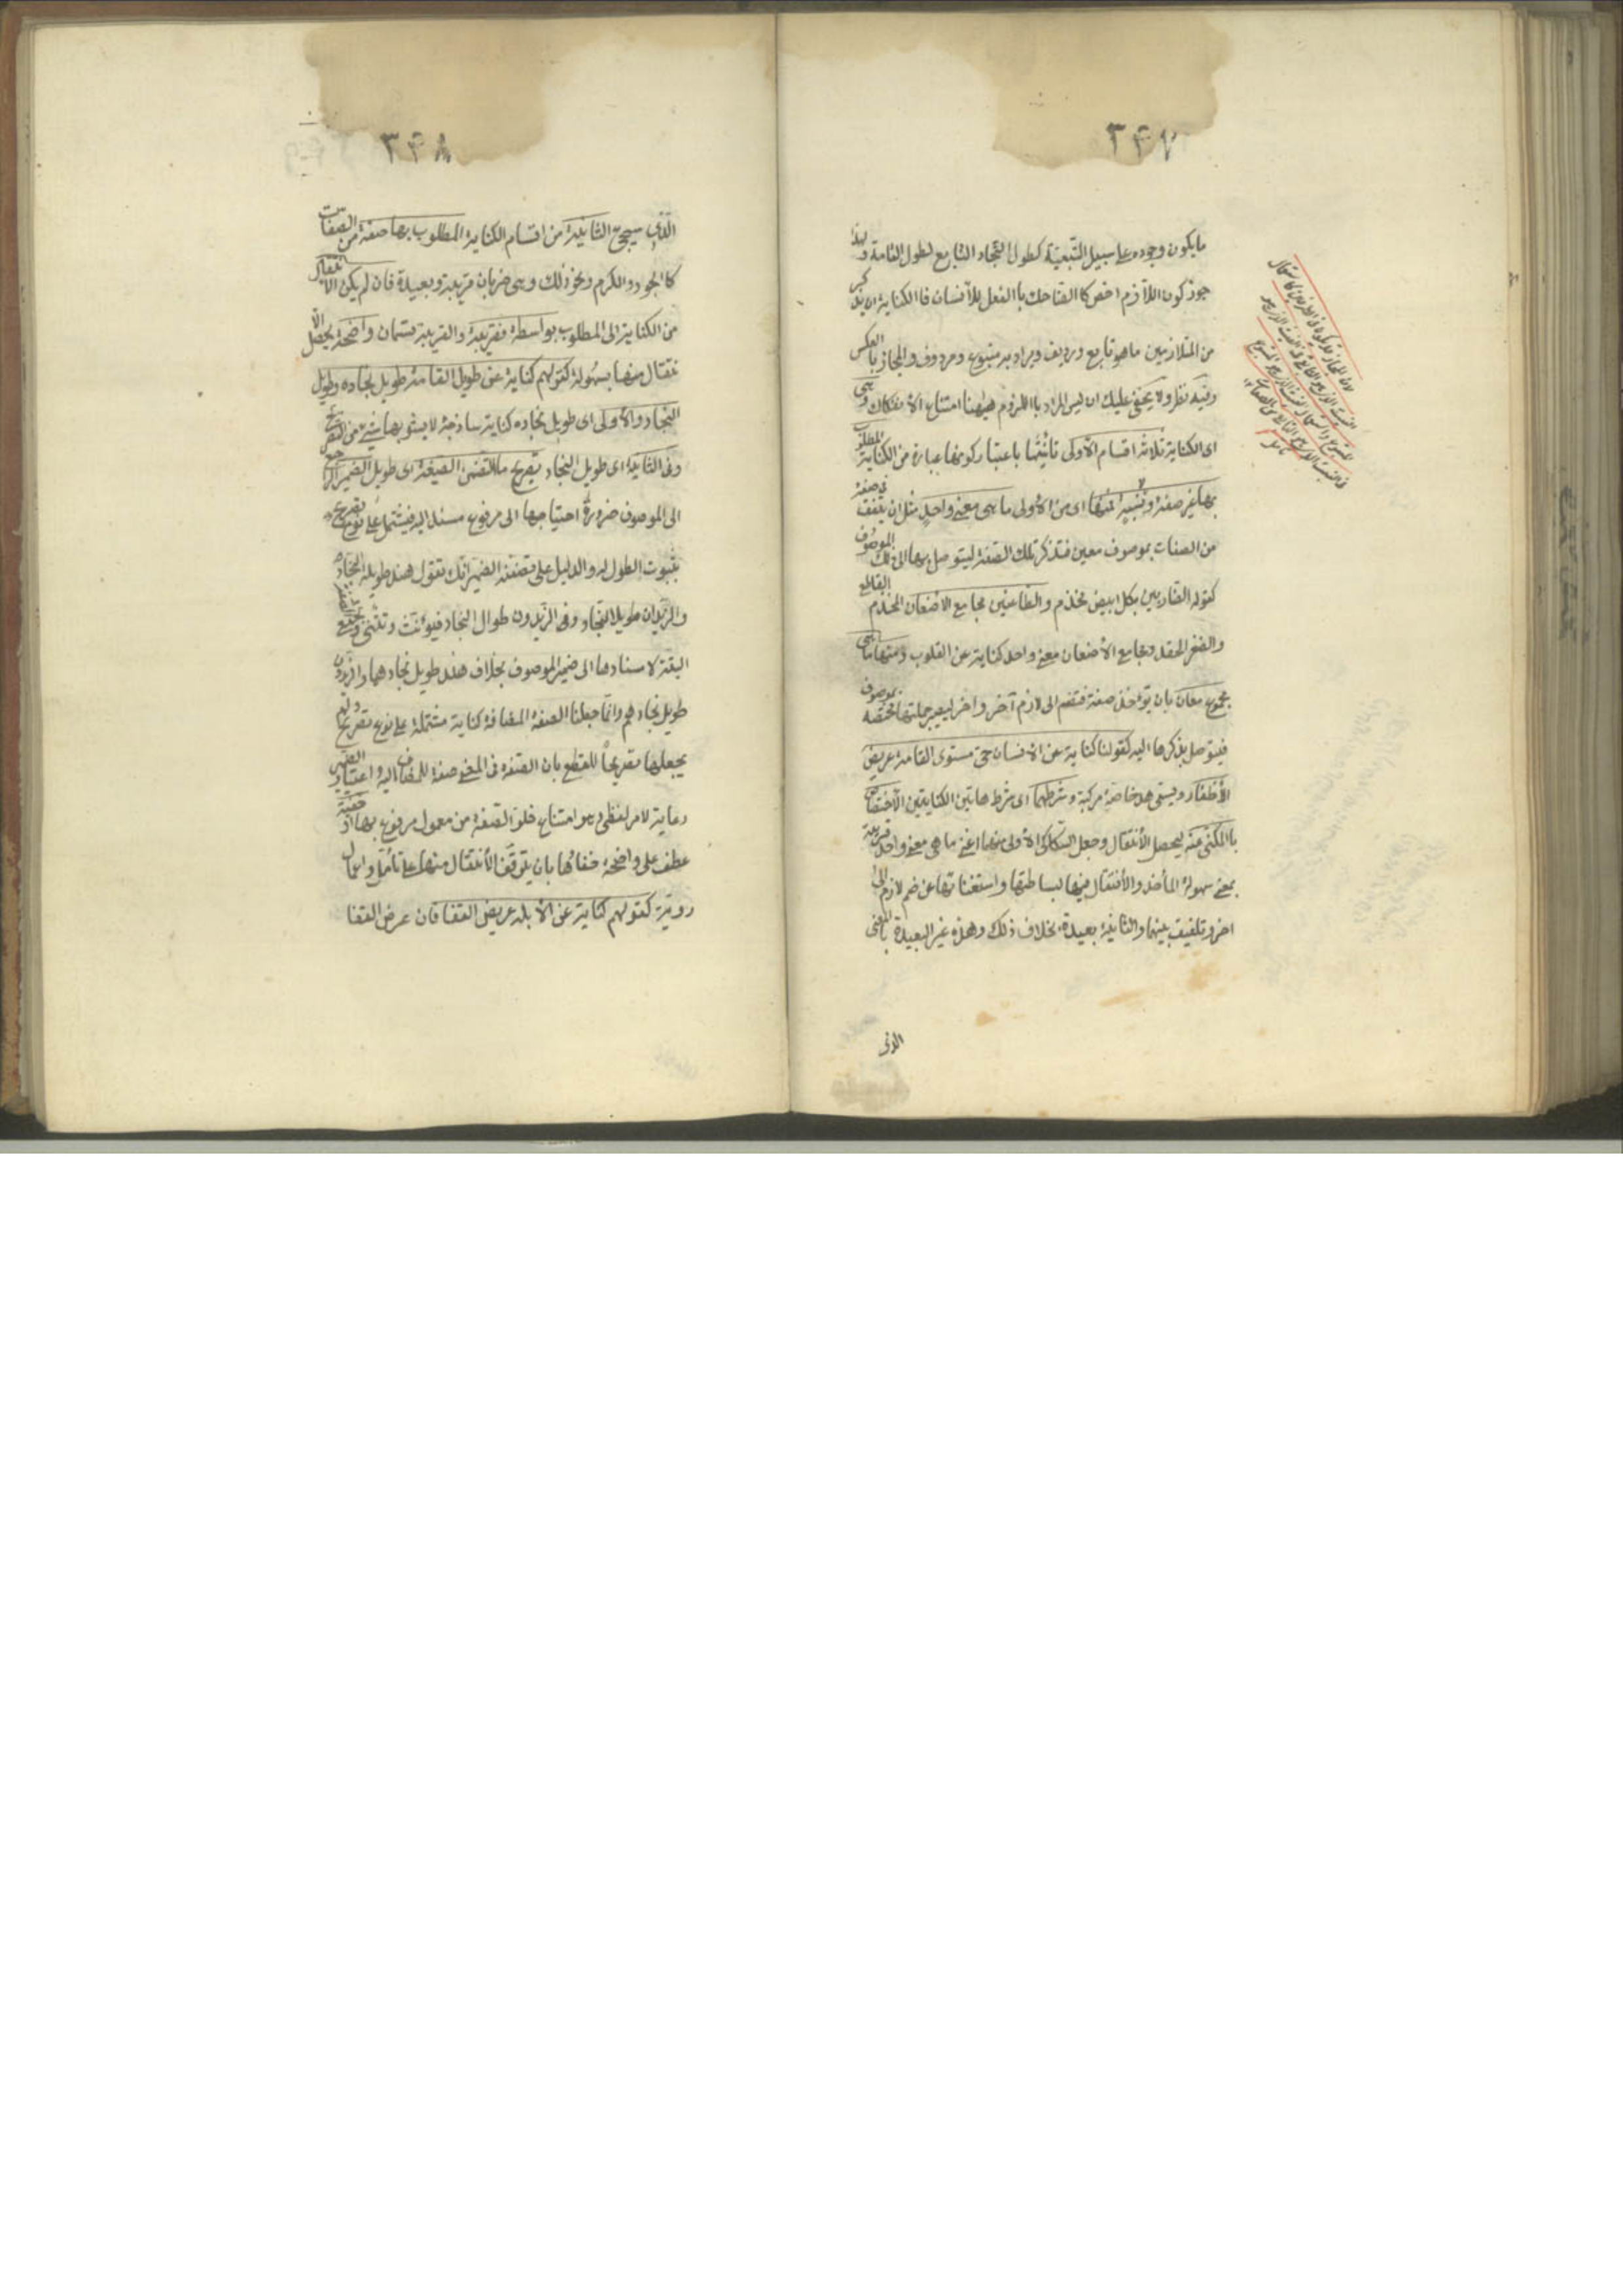 ٣٤٧
ما يكون وجوده على سبيل التّبعيّة كطول النّجاد التابع لطول القامة ولهذا
جوز كون اللّازم اخص كا الضّاحك با الفعل للأنسان فا الكناية ان يذكر
من المتلازمين ما هو تابع ورديف ويراد به متبوع ومردوف والمجاز با العكس
وفيه نظر ولا يخفى عليك ان ليس المراد با اللزوم هيهنا امتناع الأنفكاك وهى
اى الكناية ثلاثة اقسام الأولى تانيثها باعتبار كونها عبارة من الكناية المطلوب
بها غير صفة ونسبة فمنها اى من الأولى ما هى معنى واحد مثل ان يتفق فى صفة
من الصفات بموصوف معين فتذكر تلك الصّفة ليتوصل بها الى ذلك الموصوف
كقوله الضاربين بكل ابيض مخذم والطاعنين مجامع الاضغان المخذم القاطع
والضغن الحقد ومجامع الأضغان معنى واحد كناية عن القلوب ومنها ما هى
مجموع معان بان تؤخذ صفة فتضم الى لازم آخر واخر ليصير جملتها مختصة بموصوف
فيتوصل بذكرها اليه كقولنا كناية عن الانسان حى مستوى القامة عريض
الأظفار ويسمى هذه خاصة مركبة وشرطهما اى شرط هاتين الكنايتين الأختصاص
با المكنى عنه ليحصل الأنتقال وجعل السكاكى الأولى منهما اعنى ما هى معنى واحد قريبة
بمعنى سهولة المأخذ والأنتقال فيها لبساطتها واستغنائها عن ضم لازم الى
اخر وتلفيق بينهما والثانية بعيدة بخلاف ذلك وهذه غير البعيدة با المعنى
الذى
٣٤٨
الّذى سيجئ الثانية من اقسام الكناية المطلوب بها صفة من الصفات
كا الجود والكرم ونحو ذلك وهى ضربان قريبة وبعيدة فان لم يكن الأنتقال
من الكناية الى المطلوب بواسطة فقريبة والقريبة قسمان واضحة يحصل الأ
نتقال منها بسهولة كقولهم كناية عن طويل القامة طويل نجاده وطويل
النجاد والأولى اى طويل نجاده كناية ساذجة لا يشوبها شئ من التصريح
وفى الثانية اى طويل النجاد تصريح ما لتضمن الصّفة اى طويل الضمير الراجع
الى الموصوف ضرورة احتياجها الى مرفوع مسند اليه فيشتمل على نوع تصريح
بثبوت الطول له والدليل على تضمّنه الضمير انك تقول هند طويلة النجاد
والزيدان طويلا النّجاد والزيدون طوال النجاد فيؤنث وتثنى وتجمع الصفة
البتة لاسنادها الى ضمير الموصوف بخلاف هند طويل نجادهما والزيدون
طويل نجادهم وانما جعلنا الصفة المضافة كناية مشتملة على نوع تصريح ولم
يجعلها تصريحاً للقطع بان الصّفة فى المعنى صفة للمضاف اليه واعتبار الضمير
رعاية لامر لفظى وهو امتناع خلو الصّفة من معمول مرفوع بها او خفية
عطف على واضحة خفائها بان يتوقف الأنتقال منها على تأمّل واعمال
رويّة كقولهم كناية عن الأبله عريض القفا فان عرض القفا